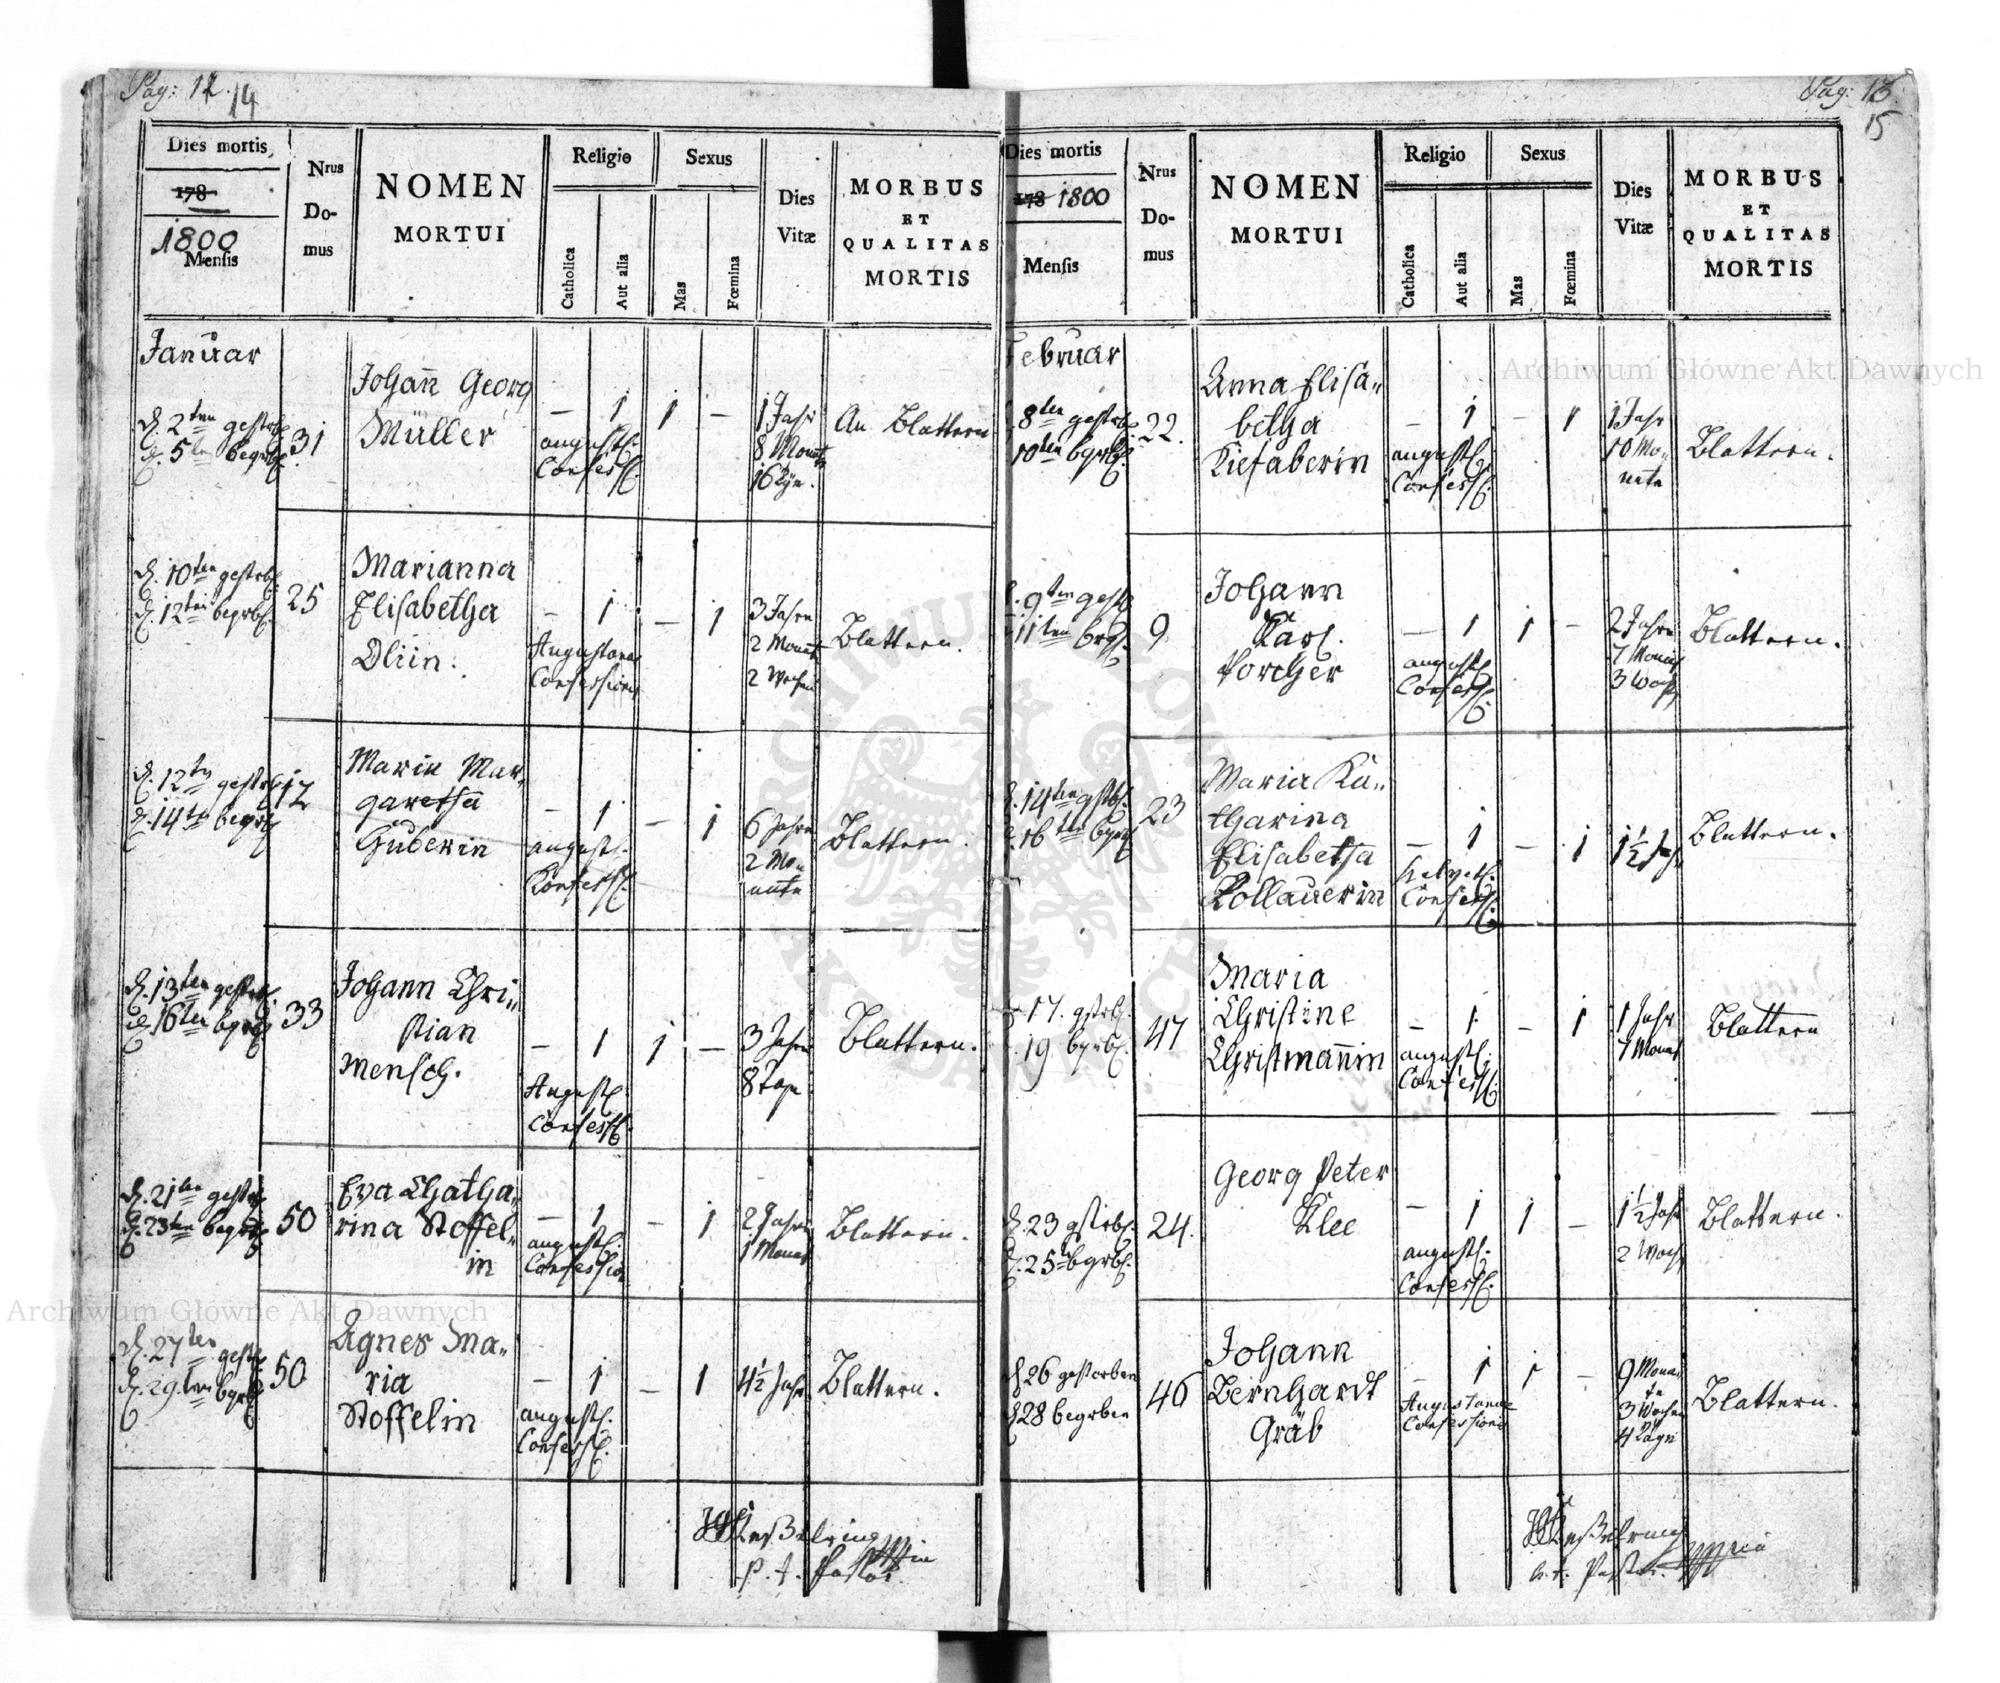 Pag: 12.
14
Dies mortis
178
1800
Mensis
Nrus
Do-
mus
NOMEN
MORTUI
Religio
Catholica
Aut alia
Sexus
Mas
Fœmina
Dies
Vitæ
MORBUS
ET
QUALITAS
MORTIS
Januar
d. 2ten gestrb.
d. 5ten begrb.
31
Johann Georg
Müller
— 1
augustl.
Confess.
1 —
1 Jahr
8 Monat
An Blattern
d. 10ten gestrb.
d. 12ten begrb.
25
Marianna
Elisabetha
— 1
Augustanae
Confessionis
— 1
3 Jahre
2 Monat
2 Wochen
Blattern.
d. 12ten gestrb.
d. 14ten begrb.
12
Maria Mar-
garetha
Huberin
— 1
augustl.
Confess.
— 1
6 Jahre
2 Mo-
nate
Blattern.
d. 13ten gestrb.
d. 16ten bgrb.
33
Johann Chri-
stian
Mensch.
— 1
Augustl.
Confess.
1 —
3 Jahre
8 Tage
Blattern.
d. 21ten gestrb.
d. 23ten begrb.
50
Eva Chatha-
rina Stoffel-
in
— 1
augustl.
Confession
— 1
2 Jahre
1 Monat
Blattern.
d. 27ten gestb.
d. 29ten bgrb.
50
Agnes Ma-
ria
Stoffelin
— 1
augustl.
Confess.
— 1
4½ Jahr
Blattern.
Pastor
Pag: 13
15
Dies mortis
178 1800
Mensis
Nrus
Do-
mus
NOMEN
MORTUI
Religio
Catholica
Aut alia
Sexus
Mas
Fœmina
Dies
Vitæ
MORBUS
ET
QUALITAS
MORTIS
Februar
8ten gestrb.
10ten bgrb.
22.
Anna Elisa-
betha
Kiefaberin
— 1
augustl.
Confess.
— 1
1 Jahr
10 Mo-
nate
Blattern.
d. 9ten gestb.
11ten brg.
9
Johann
Karl
Porcher
— 1
augustl.
Confess.
1 —
2 Jahre
7 Monat
3 Woch
Blattern.
d. 14ten gstb.
d. 16ten bgrb.
23
Maria Ka-
tharina
Elisabetha
Kollauerin
— 1
helvetl.
Confess.
— 1
1½ Jahr
Blattern.
17. gstrb.
19 bgrb.
47
Maria
Christine
Christmannin
— 1
augustl.
Confess.
— 1
1 Jahr
7 Monat
Blattern
d. 23 gstrb.
d. 25 bgrb.
24.
Georg Peter
Klee
— 1
augustl.
Confess.
1 —
1½ Jahr
2 Woch
Blattern.
d 26 gestorben
d 28 begrben
46
Johann
Bernhardt
Gräb
— 1
Augustanae
Confessionis
1 —
9 Mona-
te
3 Wochen
4 Tage
Blattern.
Pastor
Archiwum Główne Akt Dawnych
Archiwum Główne Akt Dawnych
ARCHIWUM GŁÓWNE AKT DAWNYCH